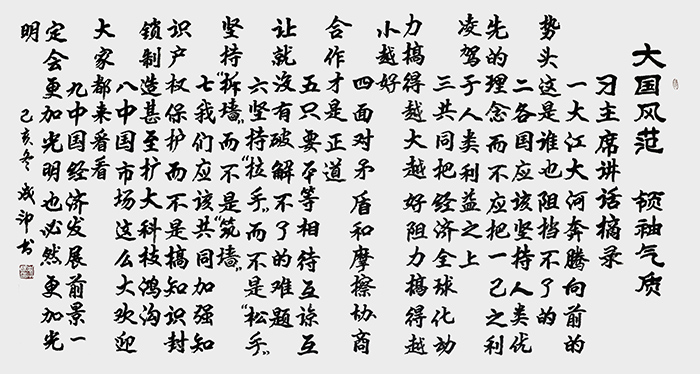 大国风范 领袖气质
习主席讲话摘录
一大江大河奔腾向前的
势头这是谁也阻挡不了的
二各国应该坚持人类优
先的理念而不应把一己之利
凌驾于人类利益之上
三共同把经济全球化动
力搞得越大越好阻力搞得越
小越好
四面对矛盾和摩擦协商
合作才是正道
五只要平等相待互谅互
让就没有破解不了的难题
六坚持“拉手”而不是“松手”
坚持“拆墙”而不是“筑墙”
七我们应该共同加强知
识产权保护而不是搞知识封
锁制造甚至扩大科技鸿沟
八中国市场这么大欢迎
大家都来看看
九中国经济发展前景一
定会更加光明也必然更加光
明
己亥冬 书